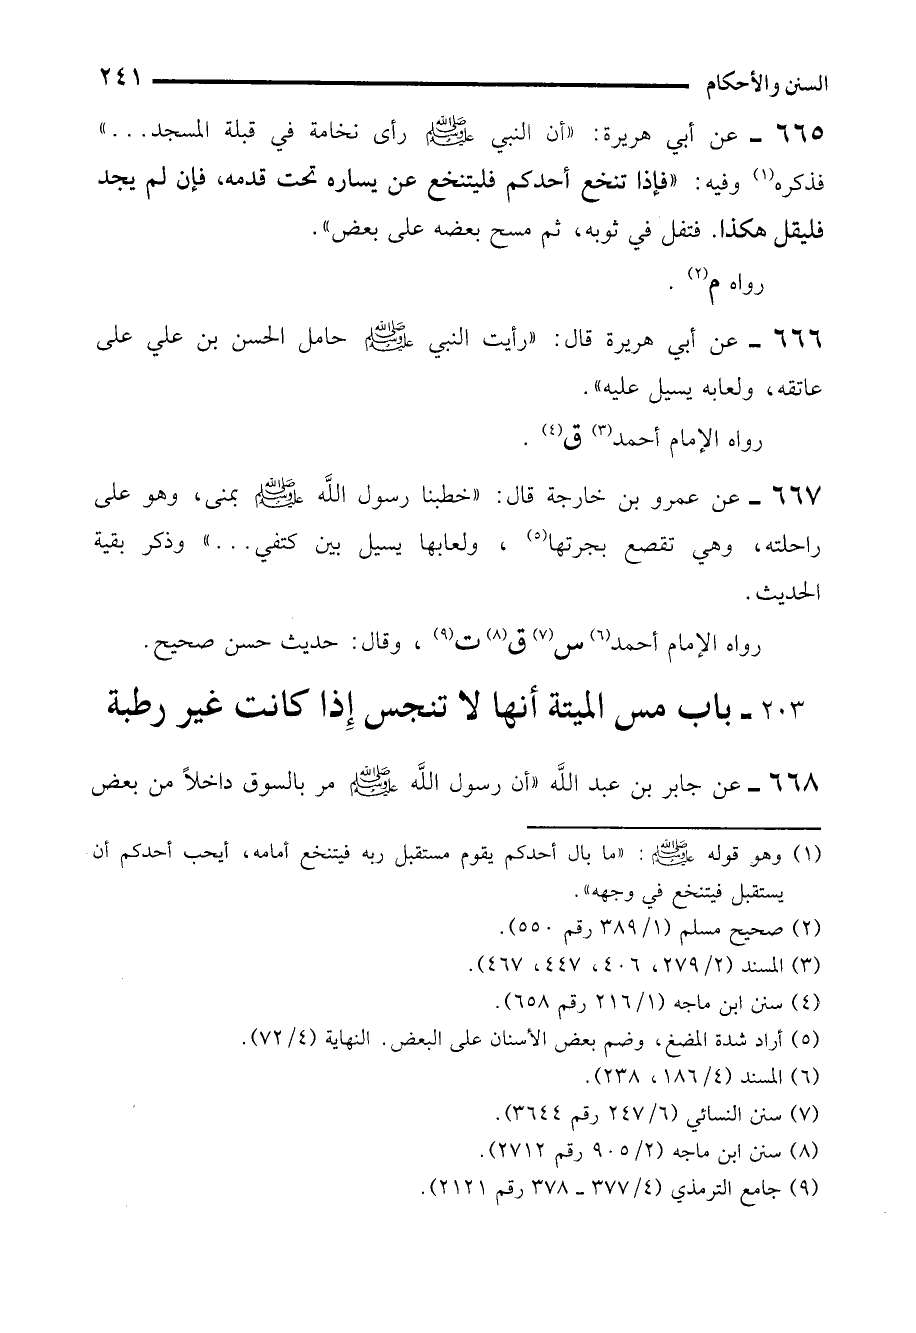 السنن والأحكام ٢٤١
٦٦٥ ـ عن أبي هريرة: «أن النبي ﷺ رأى نخامة في قبلة المسجد...»
فذكره(١) وفيه: «فإذا تنخع أحدكم فليتنخع عن يساره تحت قدمه، فإن لم يجد
فليقل هكذا. فتفل في ثوبه، ثم مسح بعضه على بعض».
رواه م(٢) .
٦٦٦ ـ عن أبي هريرة قال: «رأيت النبي ﷺ حامل الحسن بن علي على
عاتقه، ولعابه يسيل عليه».
رواه الإمام أحمد(٣) ق(٤) .
٦٦٧ ـ عن عمرو بن خارجة قال: «خطبنا رسول اللَّه ﷺ بمنى، وهو على
راحلته، وهي تقصع بجرتها(٥) ، ولعابها يسيل بين كتفي...» وذكر بقية
الحديث.
رواه الإمام أحمد(٦) س(٧) ق(٨) ت(٩) ، وقال: حديث حسن صحيح.
٢٠٣ ـ باب مس الميتة أنها لا تنجس إِذا كانت غير رطبة
٦٦٨ ـ عن جابر بن عبد اللَّه «أن رسول اللَّه ﷺ مر بالسوق داخلاً من بعض
(١) وهو قوله ﷺ : «ما بال أحدكم يقوم مستقبل ربه فيتنخع أمامه، أيحب أحدكم أن
يستقبل فيتنخع في وجهه».
(٢) صحيح مسلم (١/ ٣٨٩ رقم ٥٥٠).
(٣) المسند (٢/ ٢٧٩، ٤٠٦، ٤٤٧، ٤٦٧).
(٤) سنن ابن ماجه (١/ ٢١٦ رقم ٦٥٨).
(٥) أراد شدة المضغ، وضم بعض الأسنان على البعض. النهاية (٤/ ٧٢).
(٦) المسند (٤/ ١٨٦، ٢٣٨).
(٧) سنن النسائي (٦/ ٢٤٧ رقم ٣٦٤٤).
(٨) سنن ابن ماجه (٢/ ٩٠٥ رقم ٢٧١٢).
(٩) جامع الترمذي (٤/ ٣٧٧ ـ ٣٧٨ رقم ٢١٢١).